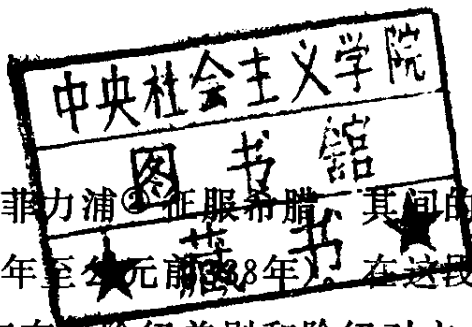 中央社会主义学院
图书馆
藏书
菲力浦② 征服希腊 其间的
年至公元前338年)。在这段